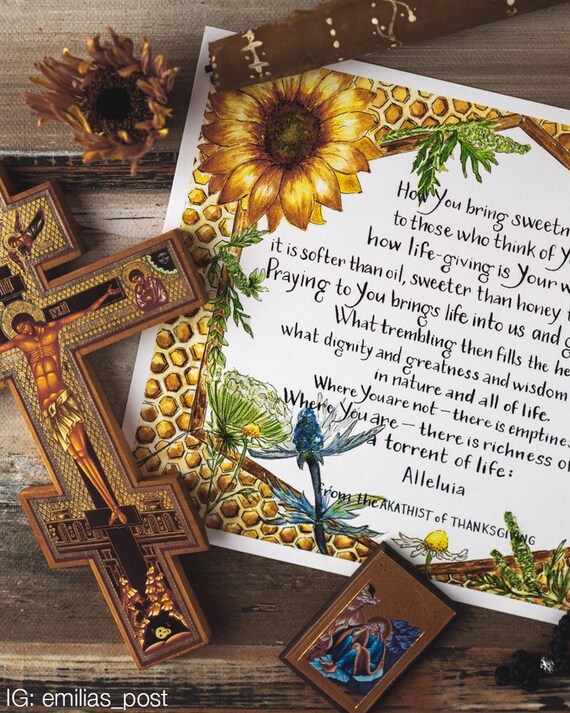 How You bring sweetn
to those who think of Y
how life-giving is Your w
it is softer than oil, sweeter than honey t
Praying to You brings life into us and g
What trembling then fills the he
what dignity and greatness and wisdom
in nature and all of life.
Where You are not – there is emptines
Where You are – there is richness o
a torrent of life:
Alleluia
from the AKATHIST of THANKSGIVING
IG: emilias_post